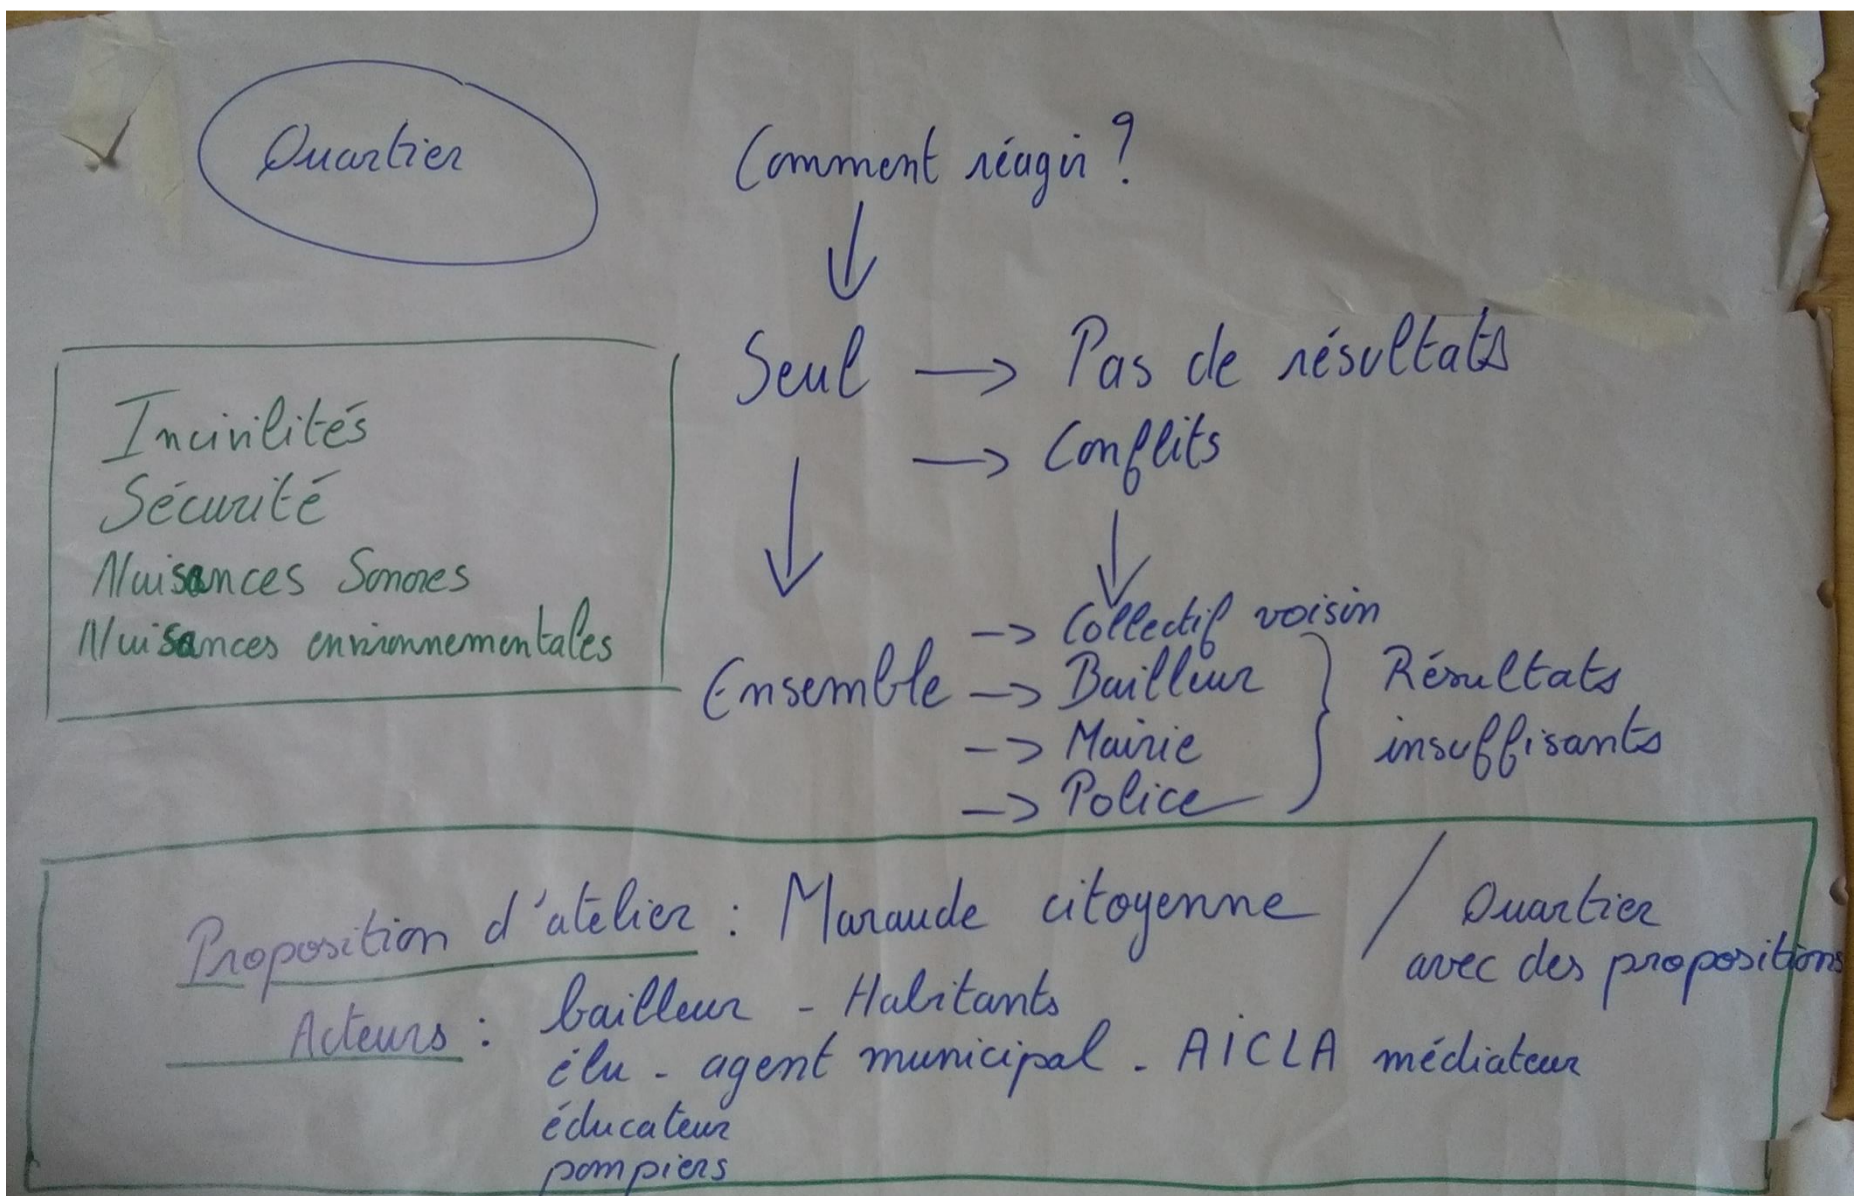 Quartier
Comment réagir ?
Incivilités
Sécurité
Nuisances Sonores
Nuisances environnementales
Seul → Pas de résultats
→ Conflits
Ensemble
-> Collectif voisin
-> Bailleur
-> Mairie
-> Police
Résultats
insuffisants
Proposition d'atelier : Maraude citoyenne / Quartier
avec des propositions
Acteurs : bailleur - Habitants
élu - agent municipal - AiCLA médiateur
éducateur
pompiers